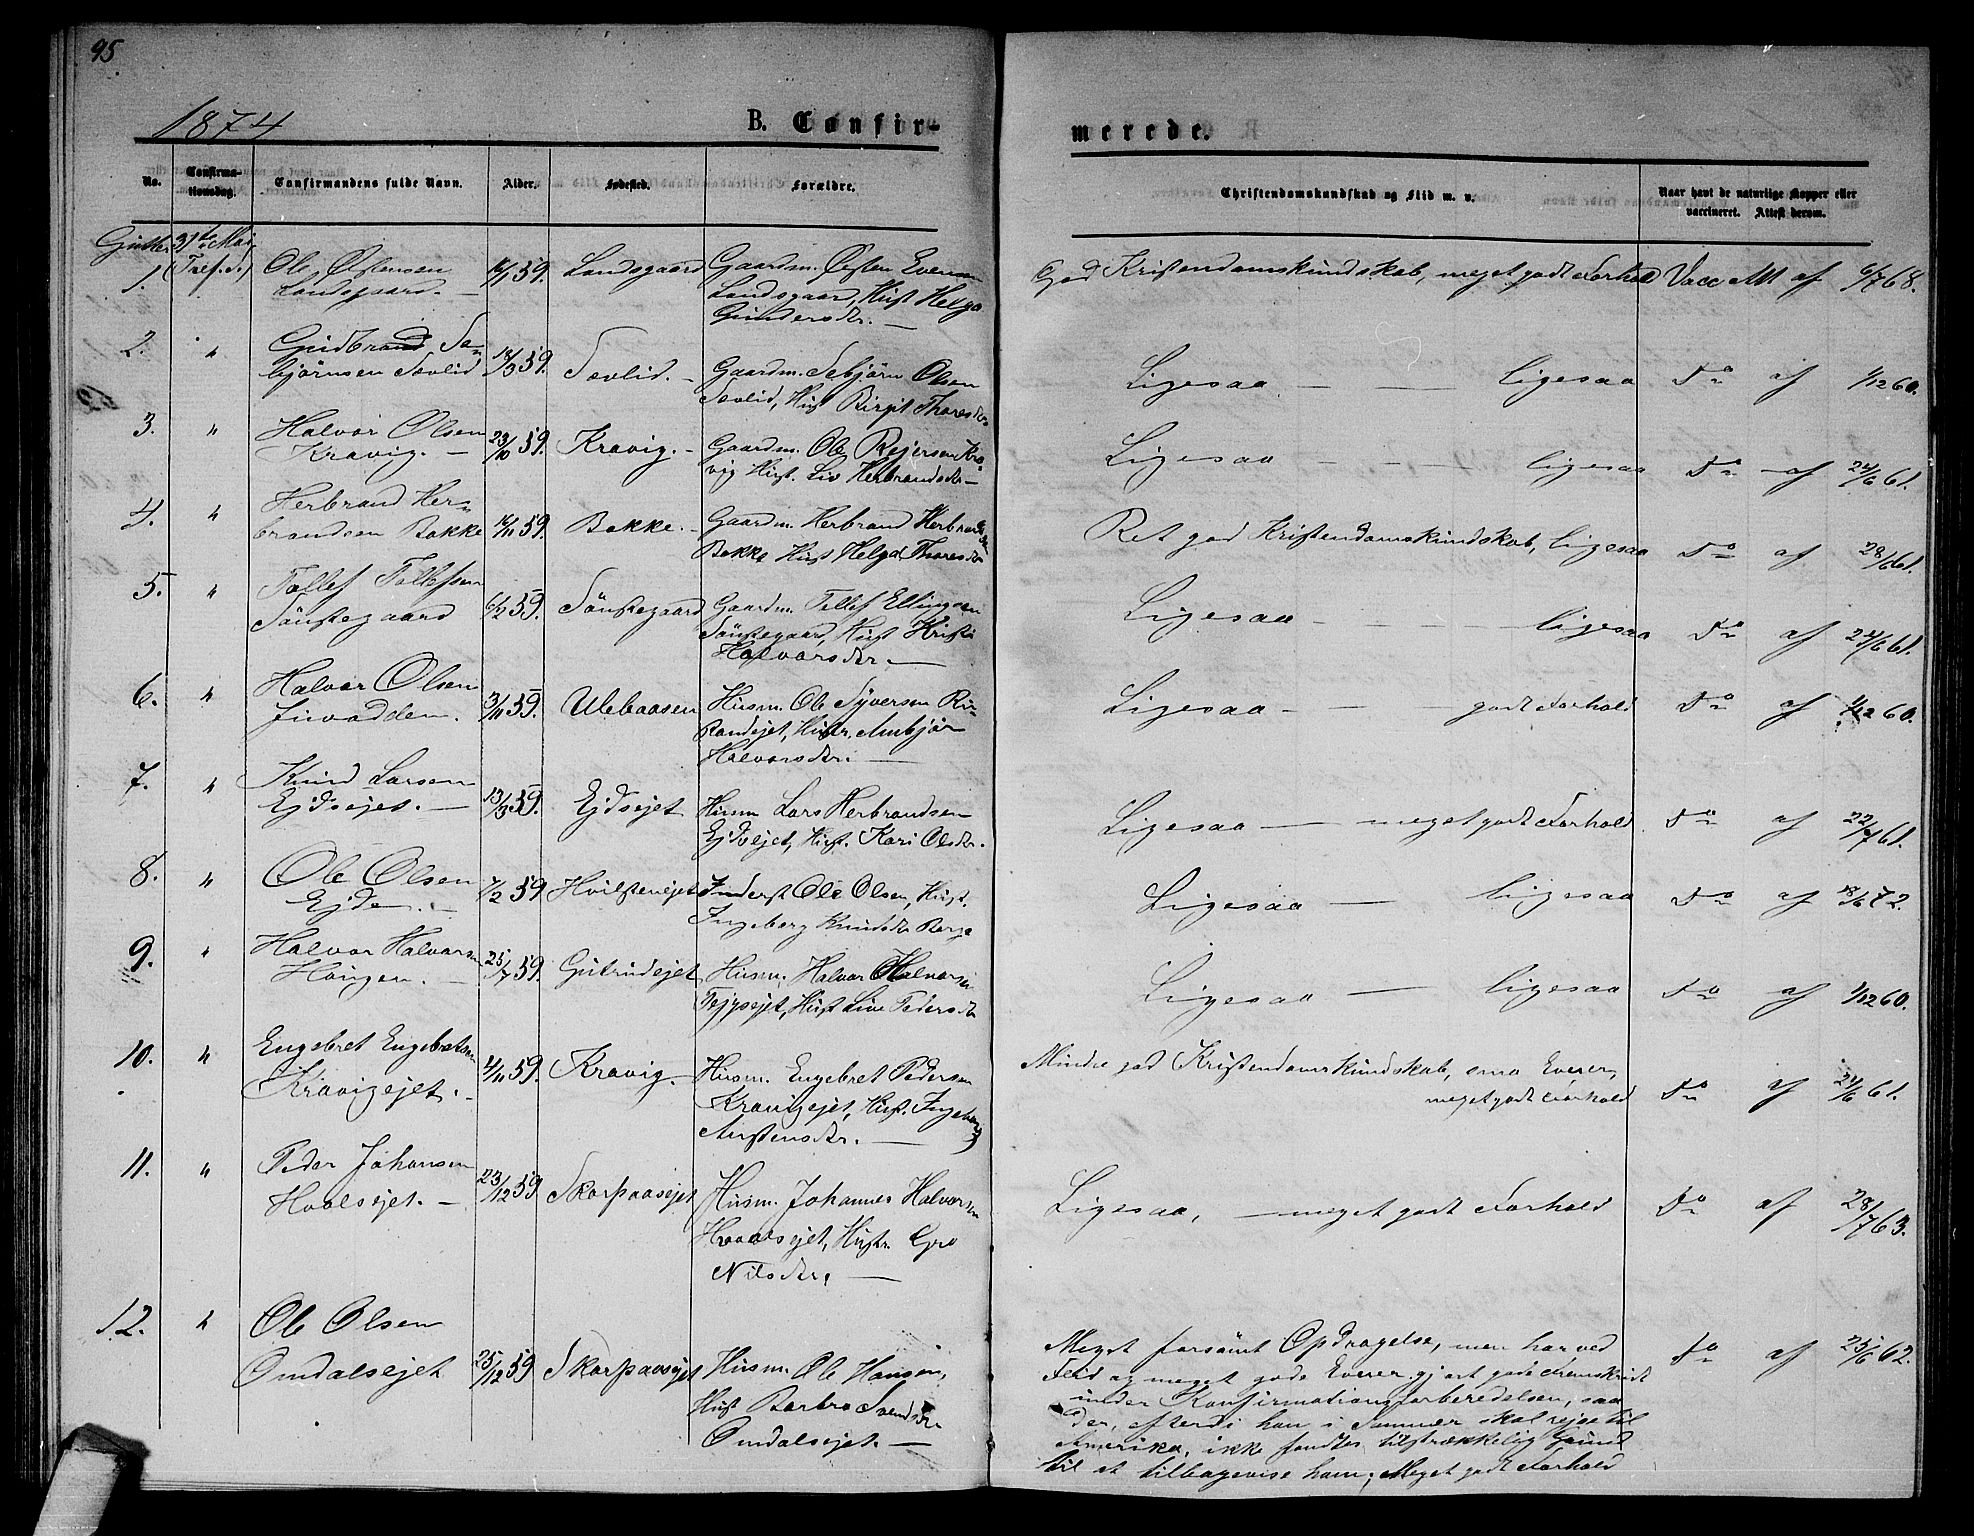 95
1874
B. Confir-
merede.
No.
Confirma-
tionsdag.
Confirmandens fulde Navn.
Alder.
Fødested.
Forældre.
Christendomskundskab og Flid m. v.
Naar havt de naturlige Kopper eller
vaccineret. Attest derom.
Gutter 31te Mai
1. Ole Østensen
Landsgaard. —
59. Landsgaard
Gaardm. Østen Evensen
Landsgaard, Hust Helga
Gundersdtr. —
God Kristendomskundskab, meget godt Forhold Vacc Att af 6/7 68.
2. " Gudbrand Se-
bjørnsen Sevlid
18/3 59. Sevlid. -
Gaardm. Sebjørn Olsen
Sevlid, Hust Birgit Thoresdtr
Ligesaa — — ligesaa Do af 1/12 60.
3. " Halvor Olsen
Kravig. —
23/10 59. Kravig. -
Gaardm. Ole Rejersen Kra-
vig Hust. Liv Herbrandsdtr —
Ligesaa - - - ligesaa Do - af 24/6 61.
4. " Herbrand Her-
brandsen Bakke
59. Bakke. -
Gaardm. Herbrand Herbrandsen
Bakke Hust Helga Thoresdtr
Ret god Kristendomskundskab, ligesaa Do af 28/6 61.
5. " Tollef Tollefsen
Sönstegaard
6/2 59. Sönstegaard
Gaardm. Tollef Ellingsen
Sönstegaard, Hust Kristi
Halvorsdtr. —
Ligesaa - - - - ligesaa Do af 24/6 61.
6. " Halvor Olsen
Juvadden.
3/11 59. Ulebaasen
Husm. Ole Syversen
Hustr.
Halvorsdtr. —
Ligesaa - - - godt Forhold Do af 1/12 60.
7. " Knud Larsen
Ejdsejet. —
13/3 59. Ejdsejet
Husm Lars Herbrandsen
Ejdsejet, Hust. Kari Olsdtr.
Ligesaa — meget godt Forhold Do af 22/7 61.
8. " Ole Olsen
Ejde. —
7/2 59 Hvilstenejet
Inderst Ole Olsen, Hust.
Ingeborg Knudsdtr Berge
Ligesaa — ligesaa Do af 18/6 72.
9. " Halvor Halvorsen
Haugen. —
25/7 59. Gulrudejet
Husm. Halvor Halvorsen
Hust Live Pedersdtr
Ligesaa — ligesaa Do af 1/12 60.
10. " Engebret Engebretsen
Kravigejet. -
4/11 59. Kravig. -
Husm. Engebret Pedersen
Kravigejet, Hust. Ingeborg
Kirstensdtr. —
Mindre god Kristendomskundskab, sma Evner,
meget godt Forhold Do af 24/6 61.
11. " Peder Johansen
Hvalsejet. —
23/12 59 Skarpaasejet
Husm. Johannes Halvorsen
Hvaalsejet, Hustr. Gro
Nilsdtr. —
Ligesaa, — meget godt Forhold Do af 28/7 63.
12. " Ole Olsen
Omdalsejet
25/12 59 Skarpaasejet
Husm. Ole Hansen,
Hust Barbro Svendsdtr
Omdalsejet. —
Meget forsömt Opdragelse, men har ved
Flid og meget gode Evner gjort gode Fremskridt
under Konfirmationsforberedelsen, saa
der, efterdi han i Sommer skal rejse til
Amerika, ikke fandtes tilstrækkelig Grund
til at tilbagevise ham; Meget godt Forhold
Do af 25/6 62.